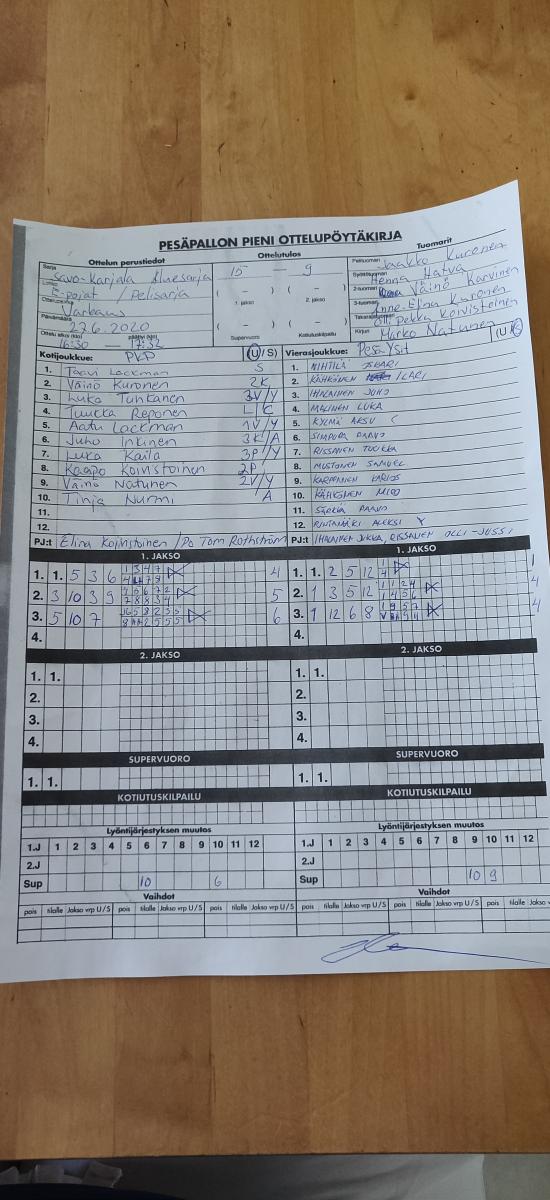 PESÄPALLON PIENI OTTELUPÖYTÄKIRJA
Ottelun perustiedot Ottelutulos Tuomarit
Sarja Savo-Karjala Aluesarja 15 — 9 Pelituomari Jaakko Kuronen
Lohko E-pojat / Pelisarja Syöttötuomari Henna Hatva
Ottelupaikka Varkaus 1. jakso 2. jakso 2-tuomari Väinö Karvinen
Päivämäärä 22.6.2020 3-tuomari Anne-Elina Kuronen
Takarajatuomari Olli Pekka Koivistoinen
Ottelu alkoi (klo) 16:30 päättyi (klo) 17:52 Supervuoro Kotiutuskilpailu Kirjuri Marko Natunen
Kotijoukkue: PKP (U/S) Vierasjoukkue: Pesä-Ysit (U/S)
1. Taavi Lackman S 1. NIHTILÄ
2. Väinö Kuronen 2K 2. KÄHKÖNEN ILARI
3. Luka Tuhkanen 3V/Y 3. IHALAINEN JUHO
4. Tuukka Reponen L/C 4. MALINEN LUKA
5. Aatu Lackman 1V/Y 5. KYLMÄ AKSU C
6. Juho Inkinen 3K/A 6. SIMPURA PAAVO
7. Luka Kaila 3P/Y 7. RISSANEN TUUKKA
8. Kaapo Koivistoinen 2P 8. MUSTONEN SAMUEL
9. Väinö Natunen 2V/Y 9. KARPPANEN
10. Tinja Nurmi A 10. KÄHKÖNEN MIRO
11. 11. PAAVO
12. 12. RINTAMÄKI ALEKSI Y
PJ:t Elina Koivistoinen /Po Tom Rothström PJ:t IHALAINEN JUKKA, RISSANEN OLLI-JUSSI
1. JAKSO 1. JAKSO
1. 1. 5 3 6 4 1. 1. 2 5 12 1
2. 3 10 3 9 5 2. 1 3 5 12 4
3. 5 10 7 6 3. 1 12 6 8 4
4. 4.
2. JAKSO 2. JAKSO
1. 1. 1. 1.
2. 2.
3. 3.
4. 4.
SUPERVUORO SUPERVUORO
1. 1. 1. 1.
KOTIUTUSKILPAILU KOTIUTUSKILPAILU
Lyöntijärjestyksen muutos Lyöntijärjestyksen muutos
1.J 1 2 3 4 5 6 7 8 9 10 11 12 1.J 1 2 3 4 5 6 7 8 9 10 11 12
2.J 2.J
Sup 10 6 Sup 10 9
Vaihdot Vaihdot
pois tilalle Jakso vrp U/S pois tilalle Jakso vrp U/S pois tilalle Jakso vrp U/S pois tilalle Jakso vrp U/S